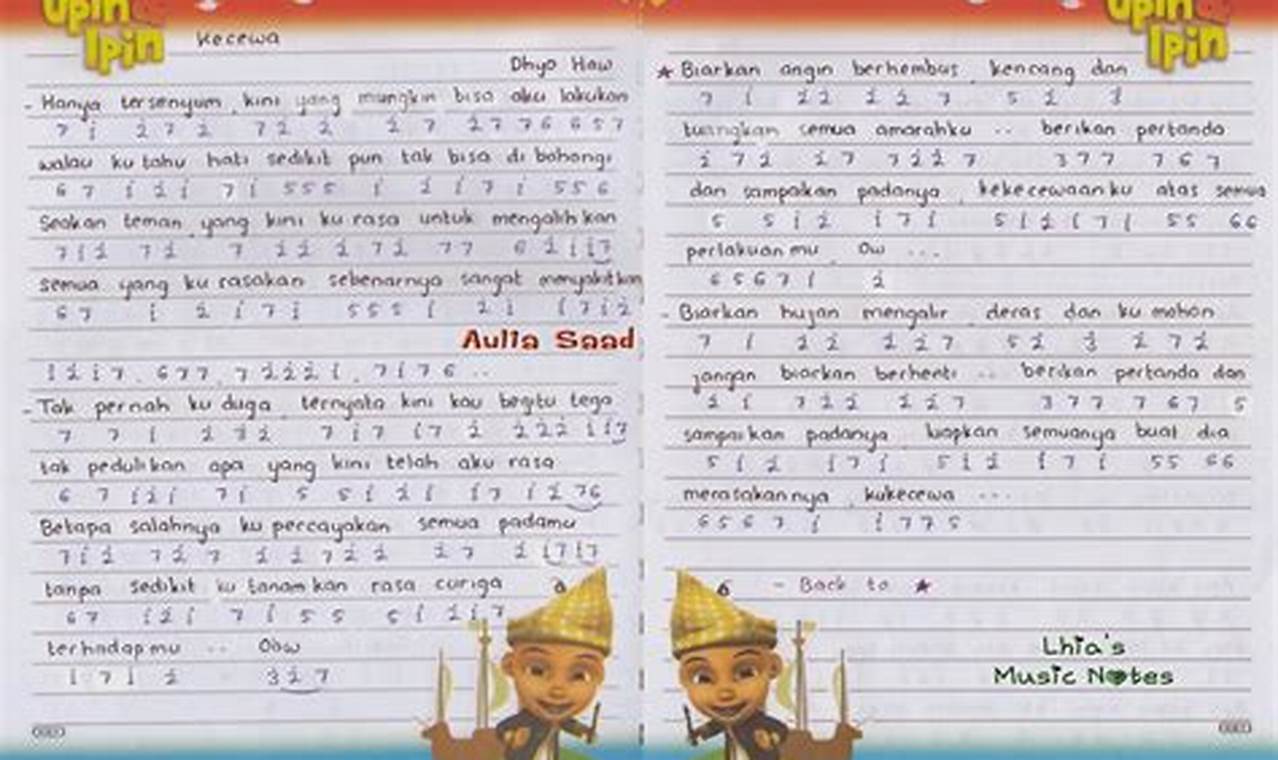 Upin
Ipin
Kecewa
Dhyo Haw
- Hanya tersenyum, kini yang mungkin bisa aku lakukan
7 i 2 7 2 7 2 2 2 7 2 7 7 6 6 5 7
walau ku tahu hati sedikit pun tak bisa di bohongi
6 7 i 2 i 7 i 5 5 5 i 2 i 7 i 5 5 6
Seakan teman, yang kini ku rasa untuk mengalihkan
7 i 2 7 2 7 2 2 2 7 2 7 7 6 2 i i 7
semua yang ku rasakan sebenarnya sangat menyakitkan
6 7 i 2 i 7 i 5 5 5 i 2 i i 7 i 2
Aulia Saad
i 2 i 7 . 6 7 7 . 7 2 2 2 i . 7 i 7 6 ..
- Tak pernah ku duga, ternyata kini kau begitu tega
7 7 i 2 3 2 7 i 7 i 7 2 2 2 2 i i 7
tak pedulikan apa yang kini telah aku rasa
6 7 i 2 i 7 i 5 5 i 2 i i 7 i 2 7 6
Betapa salahnya ku percayakan semua padamu
7 i 2 7 2 7 2 2 7 2 2 2 7 2 i 7 i 7
tanpa sedikit ku tanamkan rasa curiga
6 7 i 2 i 7 i 5 5 5 i 2 i 7
terhadapmu .. Oow
i 7 i 2 3 2 7
Upin
Ipin
★ Biarkan angin berhembus, kencang dan
7 i 2 2 2 2 7 5 2 3
tuangkan semua amarahku .. berikan pertanda
2 7 2 2 7 7 2 2 7 3 7 7 7 6 7
dan sampaikan padanya, kekecewaanku atas semua
5 5 i 2 i 7 i 5 i 2 i 7 i 5 5 6 6
perlakuanmu, Ow ...
6 5 6 7 i 2
- Biarkan hujan mengalir, deras dan ku mohon
7 i 2 2 2 2 7 5 2 3 2 7 2
jangan biarkan berhenti .. berikan pertanda dan
2 i 7 2 2 2 2 7 3 7 7 7 6 7 5
sampaikan padanya, luapkan semuanya buat dia
5 i 2 i 7 i 5 i 2 i 7 i 5 5 6 6
merasakannya, kukecewa ...
6 5 6 7 i i 7 7 5
6 - Back to ★
Lhia's
Music Notes